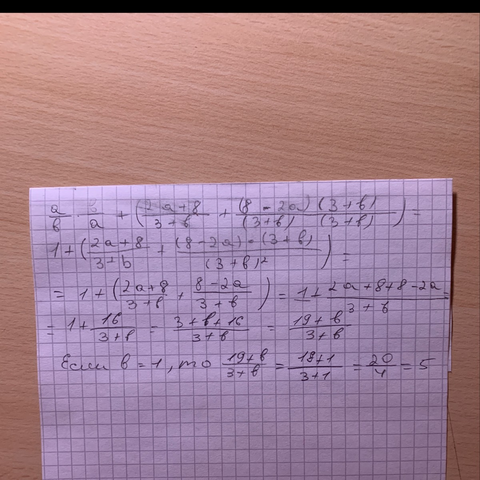 a/b · b/a + ((2a+8)/(3+b) + ((8-2a)(3+b))/((3+b)(3+b))) =
1+((2a+8)/(3+b) + ((8-2a)·(3+b))/(3+b)²) =
= 1+((2a+8)/(3+b) + (8-2a)/(3+b)) = 1+(2a+8+8-2a)/(3+b) =
= 1+16/(3+b) = (3+b+16)/(3+b) = (19+b)/(3+b)
Если b=1, то (19+b)/(3+b) = (19+1)/(3+1) = 20/4 = 5